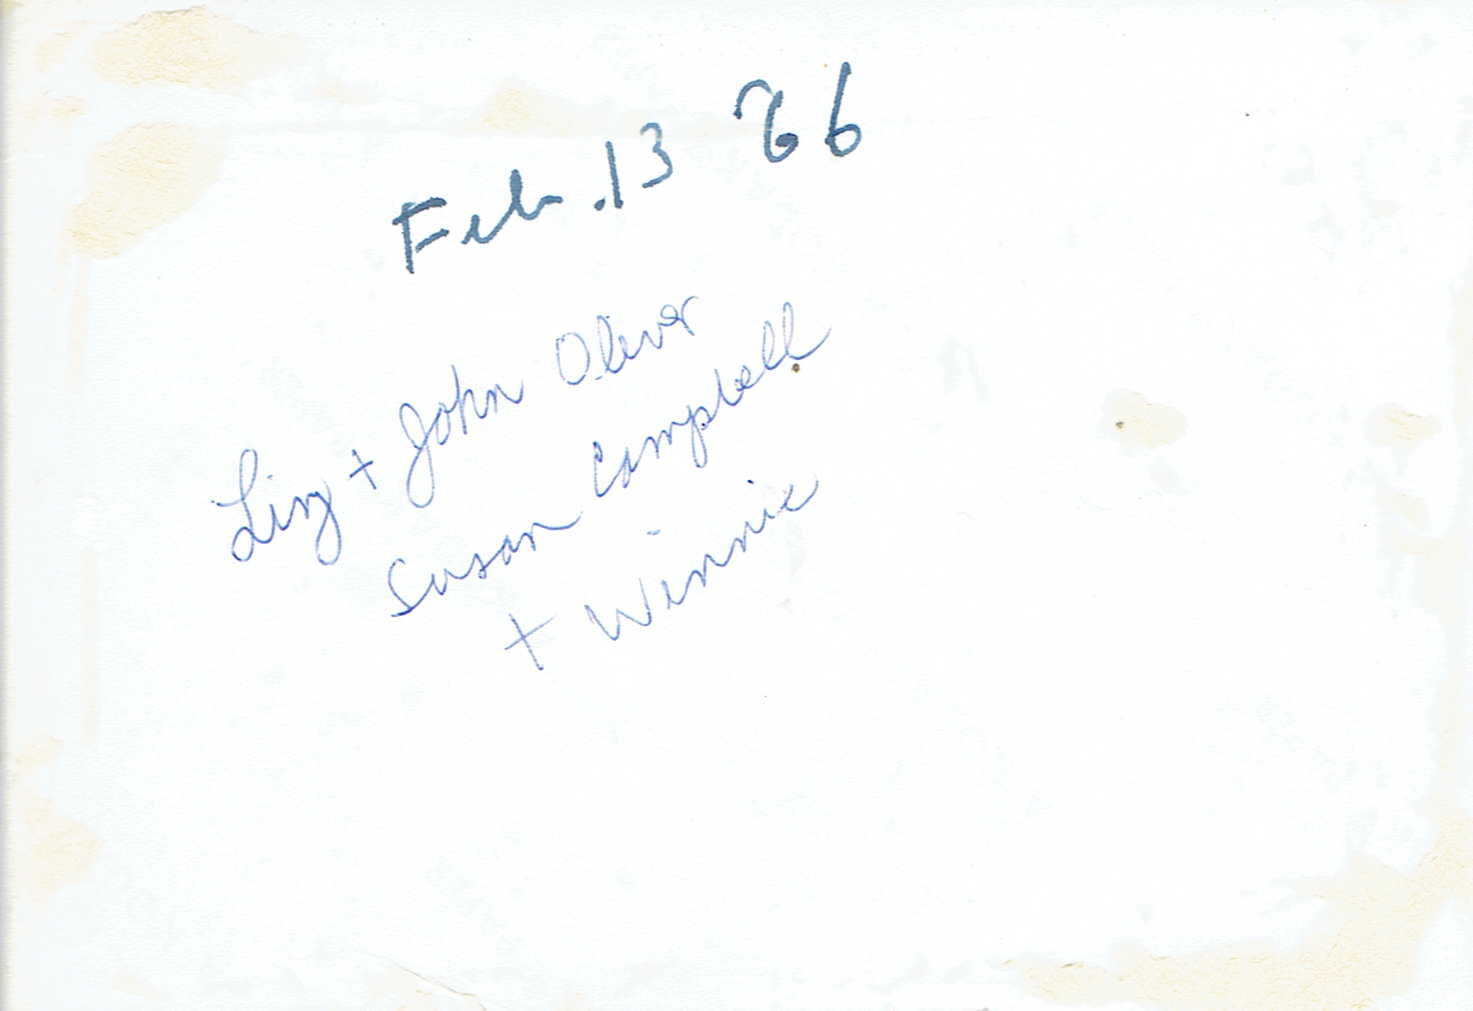 Feb. 13 66
Liz + John Oliver
Susan Campbell
+ Winnie